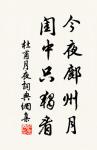 今夜鄜州月
閨中只獨看
杜甫月夜詞典網集